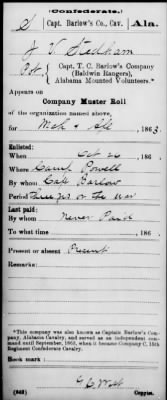 (Confederate.)
S | Capt. Barlow's Co., Cav. | Ala.
J V Stedham
Pvt, Capt. T. C. Barlow's Company
(Baldwin Rangers),
Alabama Mounted Volunteers.*
Appears on
Company Muster Roll
of the organization named above,
for 1863.
Enlisted:
When Oct 26 186 .
Where Camp Powell
By whom Capt Barlow
Period Three yrs or the war
Last paid:
By whom Never Paid
To what time 186 .
Present or absent Present
Remarks:
*This company was also known as Captain Barlow's Company, Alabama Cavalry, and served as an independent command until September, 1863, when it became Company C, 15th Regiment Confederate Cavalry.
Book mark:
(642) Copyist.